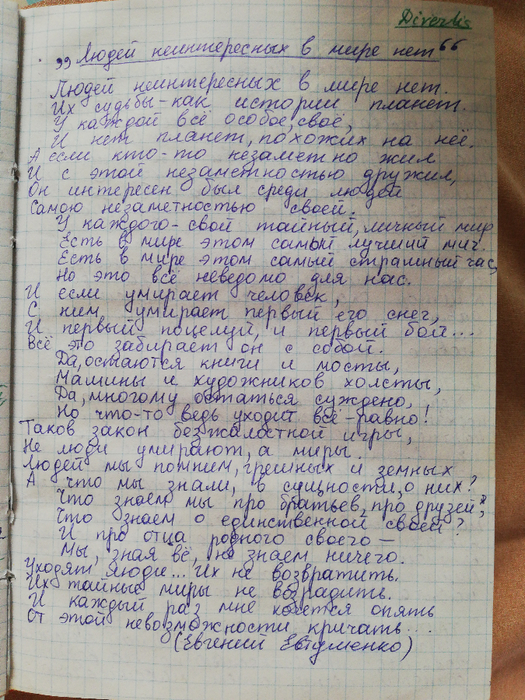 Divertis
„Людей неинтересных в мире нет“
Людей неинтересных в мире нет.
Их судьбы - как истории планет.
У каждой всё особое, своё,
И нет планет, похожих на неё.
А если кто-то незаметно жил
И с этой незаметностью дружил,
Он интересен был среди людей
Самою незаметностью своей.
У каждого - свой тайный, личный мир
Есть в мире этом самый лучший миг.
Есть в мире этом самый страшный час,
Но это всё неведомо для нас.
И если умирает человек,
С ним умирает первый его снег,
И первый поцелуй, и первый бой...
Всё это забирает он с собой.
Да, остаются книги и мосты,
Машины и художников холсты,
Да, многому остаться суждено,
Но что-то ведь уходит всё-равно!
Таков закон безжалостной игры,
Не люди умирают, а миры.
Людей мы помним, грешных и земных
А что мы знали, в сущности, о них?
Что знаем мы про братьев, про друзей,
Что знаем о единственной своей?
И про отца родного своего —
Мы, зная всё, не знаем ничего.
Уходят люди... Их не возвратить.
Их тайные миры не возрадить.
И каждый раз мне хочется опять
От этой невозможности кричать...
(Евгений Евтушенко)